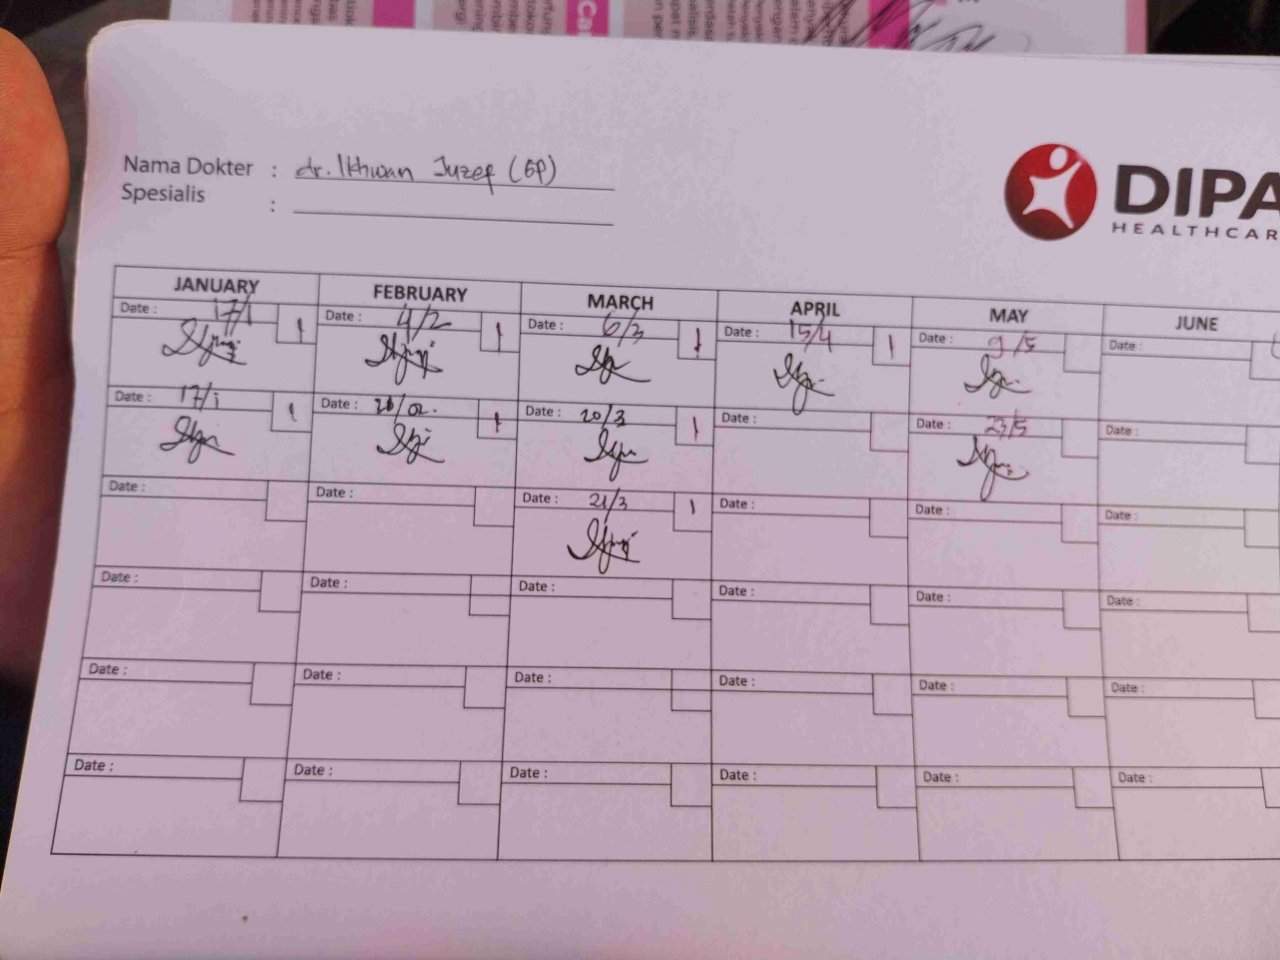 Nama Dokter : dr. Ikhwan Juzef (GP)
Spesialis :
DIPA
HEALTHCAR
JANUARY FEBRUARY MARCH APRIL MAY JUNE
Date : 17/1 1 Date : 4/2 1 Date : 6/3 1 Date : 15/4 1 Date : 9/5 Date :
Date : 17/1 1 Date : 20/3 1 Date : Date : 23/5 Date :
Date : Date : Date : 21/3 1 Date : Date : Date :
Date : Date : Date : Date : Date : Date :
Date : Date : Date : Date : Date : Date :
Date : Date : Date : Date : Date : Date :